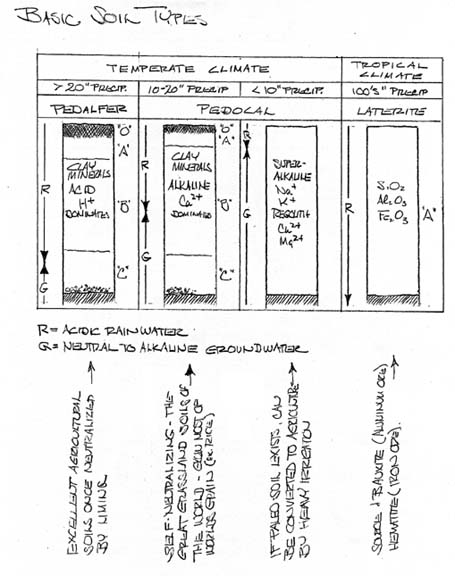 BASIC SOIL TYPES
TEMPERATE CLIMATE
TROPICAL CLIMATE
>20" PRECIP.
10-20" PRECIP
<10" PRECIP.
100'S" PRECIP
PEDALFER
PEDOCAL
LATERITE
"O"
"A"
CLAY
MINERALS
ACID
H+
DOMINATED
"B"
"C"
R
G
"O"
"A"
CLAY
MINERALS
ALKALINE
Ca2+
DOMINATED
"B"
"C"
R
G
R
G
SUPER-
ALKALINE
Na+
K+
REGOLITH
Ca2+
Mg2+
R
SiO2
Al2O3
Fe2O3
"A"
R = ACIDIC RAINWATER
G = NEUTRAL TO ALKALINE GROUNDWATER
EXCELLENT AGRICULTURAL
SOILS ONCE NEUTRALIZED
BY LIMING
SELF-NEUTRALIZING - THE
GREAT GRASSLAND SOILS OF
THE WORLD - GROW MOST OF
WORLD'S GRAIN (EX. RICE)
IF PALEO SOIL EXISTS, CAN
BE CONVERTED TO AGRICULTURE
BY HEAVY IRRIGATION
SOURCE OF BAUXITE (ALUMINUM ORE)
HEMATITE (IRON ORE).